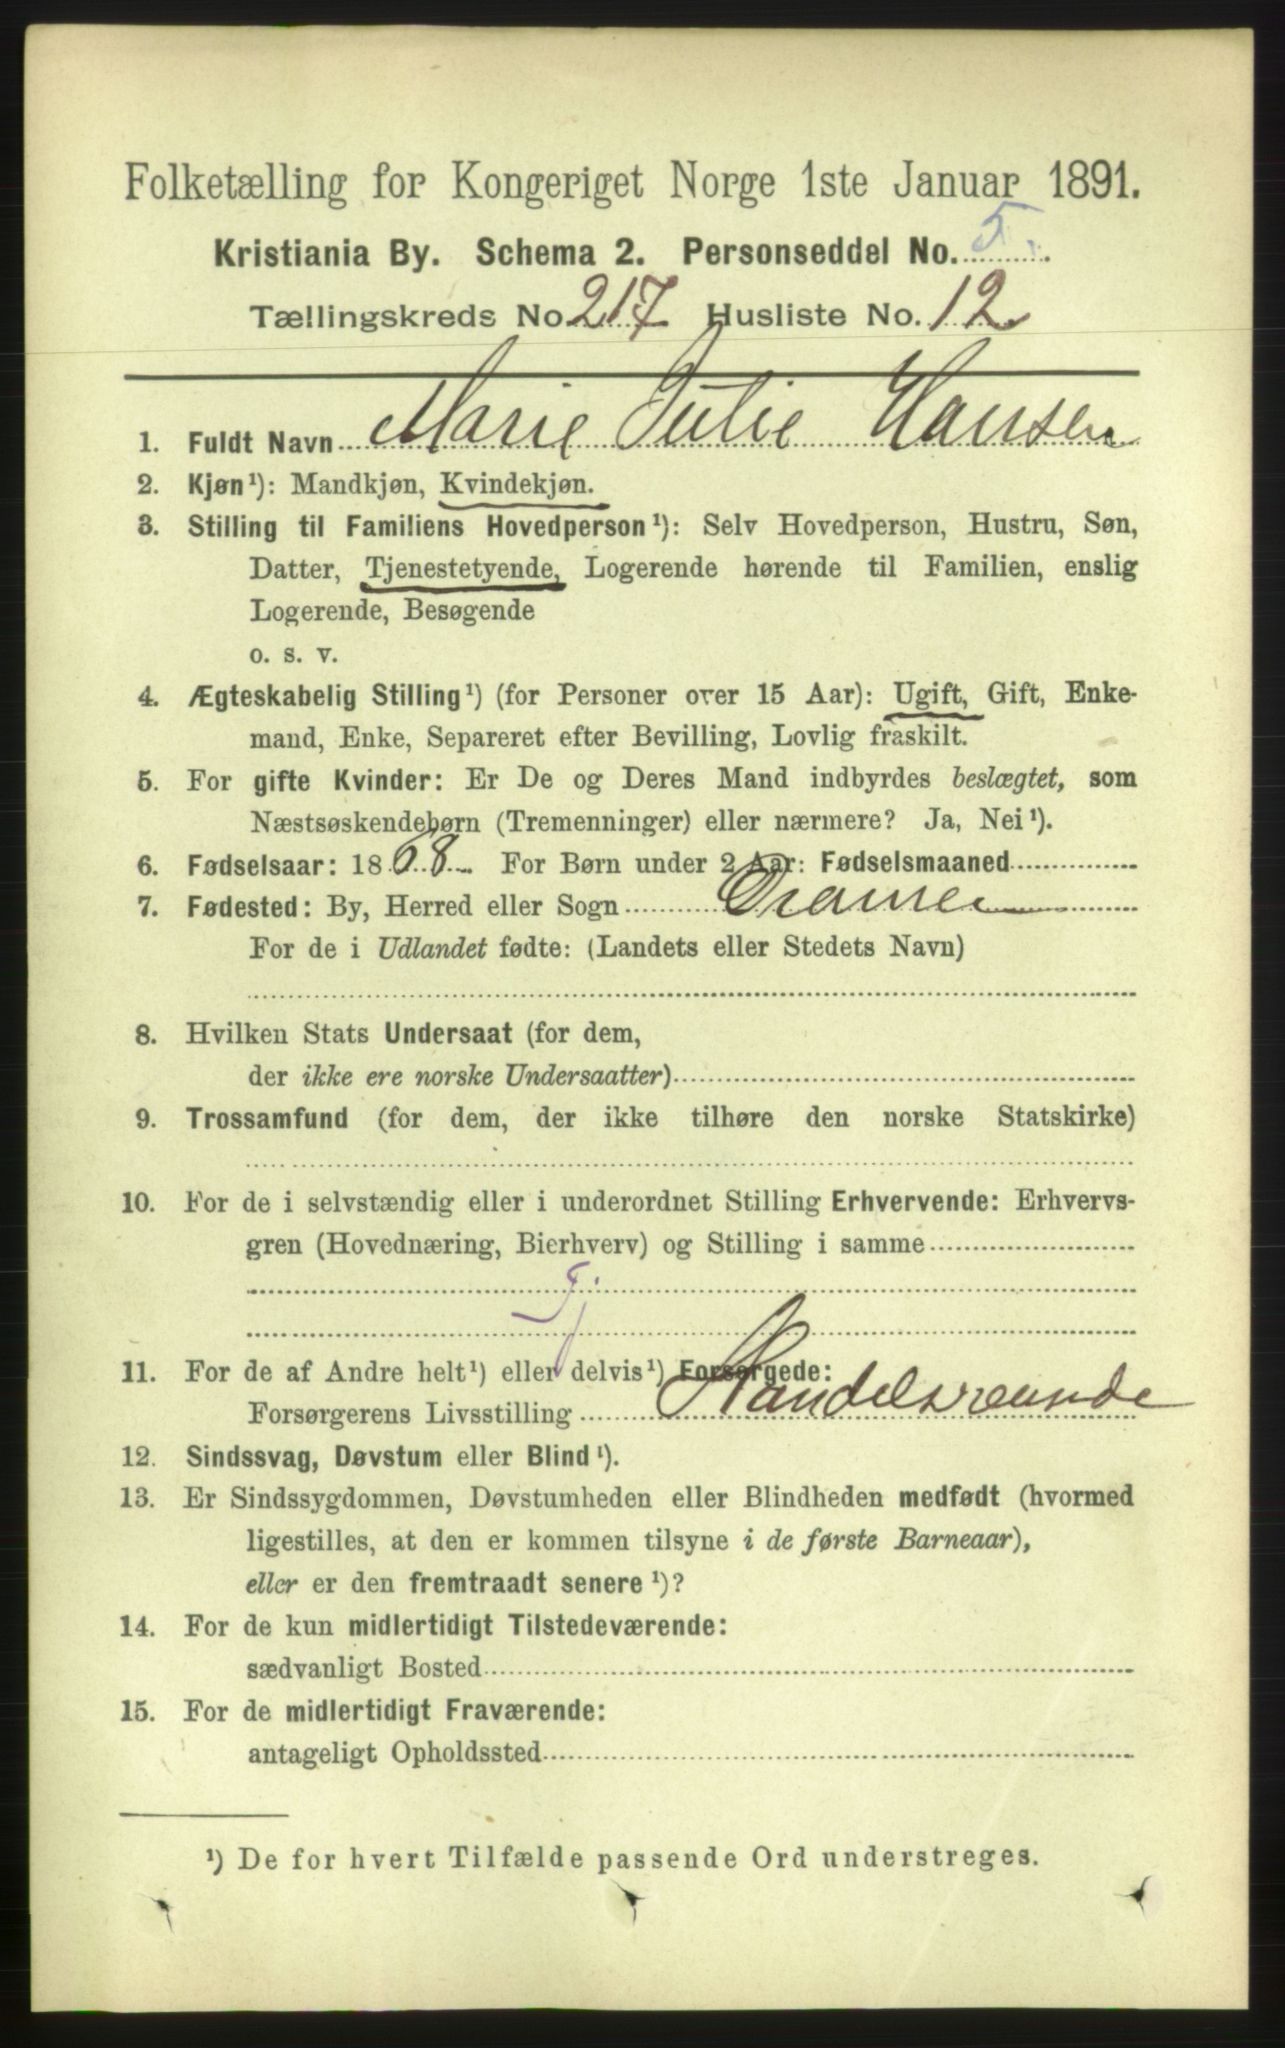 Folketælling for Kongeriget Norge 1ste Januar 1891.
Kristiania By. Schema 2. Personseddel No. 5.
Tællingskreds No. 217 Husliste No. 12
1. Fuldt Navn Marie Julie Hansen
2. Kjøn¹): Mandkjøn, Kvindekjøn.
3. Stilling til Familiens Hovedperson¹): Selv Hovedperson, Hustru, Søn,
Datter, Tjenestetyende, Logerende hørende til Familien, enslig
Logerende, Besøgende
o. s. v.
4. Ægteskabelig Stilling¹) (for Personer over 15 Aar): Ugift, Gift, Enke-
mand, Enke, Separeret efter Bevilling, Lovlig fraskilt.
5. For gifte Kvinder: Er De og Deres Mand indbyrdes beslægtet, som
Næstsøskendebørn (Tremenninger) eller nærmere? Ja, Nei¹).
6. Fødselsaar: 1868 For Børn under 2 Aar: Fødselsmaaned
7. Fødested: By, Herred eller Sogn Dramen
For de i Udlandet fødte: (Landets eller Stedets Navn)
8. Hvilken Stats Undersaat (for dem,
der ikke ere norske Undersaatter)
9. Trossamfund (for dem, der ikke tilhøre den norske Statskirke)
10. For de i selvstændig eller i underordnet Stilling Erhvervende: Erhvervs-
gren (Hovednæring, Bierhverv) og Stilling i samme
Tj
11. For de af Andre helt¹) eller delvis¹) Forsørgede:
Forsørgerens Livsstilling
12. Sindssvag, Døvstum eller Blind¹).
13. Er Sindssygdommen, Døvstumheden eller Blindheden medfødt (hvormed
ligestilles, at den er kommen tilsyne i de første Barneaar),
eller er den fremtraadt senere¹)?
14. For de kun midlertidigt Tilstedeværende:
sædvanligt Bosted
15. For de midlertidigt Fraværende:
antageligt Opholdssted
¹) De for hvert Tilfælde passende Ord understreges.